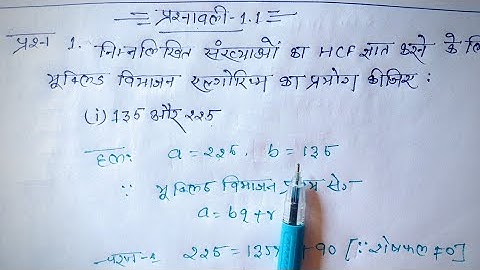 प्रश्नावली-1.1
प्रश्न 1. निम्नलिखित संख्याओं का HCF ज्ञात करने के
यूक्लिड विभाजन एल्गोरिथ्म का प्रयोग कीजिए :
(i) 135 और 225
हल: a = 225, b = 135
∵ यूक्लिड विभाजन से
a = bq + r
चरण-1 225 = 135 + 90 [∵ शेषफल ≠ 0]